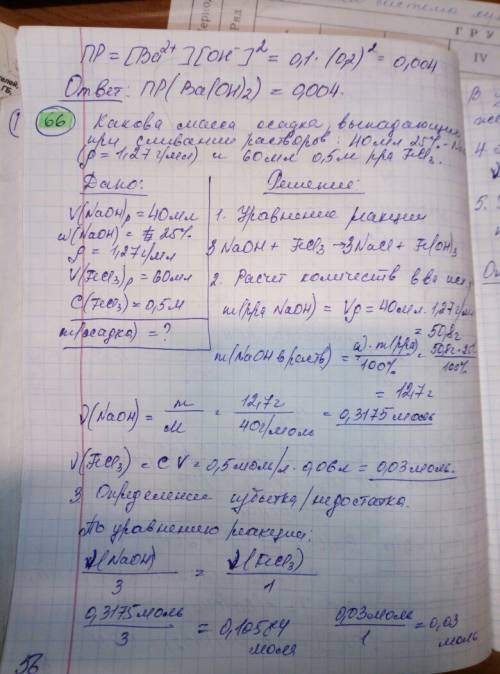 ПР = [Ba²⁺][OH⁻]² = 0,1 · (0,2)² = 0,004
Ответ: ПР(Ba(OH)₂) = 0,004.
66 Какова масса осадка, выпадающего
при сливании растворов: 40мл 25%
(ρ = 1,27г/мл) и 60мл 0,5М р-ра FeCl₃.
Дано:
V(NaOH)р = 40мл
ω(NaOH) = 25%
ρ = 1,27г/мл
V(FeCl₃)р = 60мл
C(FeCl₃) = 0,5М
m(осадка) = ?
Решение:
1. Уравнение реакции
3NaOH + FeCl₃ → 3NaCl + Fe(OH)₃
2. Расчет количеств в-ва
m(р-ра NaOH) = Vρ = 40мл · 1,27г/мл
= 50,8г
m(NaOH в р-ре) = ω · m(р-ра) / 100% = 50,8г · 25 / 100%
= 12,7г
ν(NaOH) = m / M = 12,7г / 40г/моль = 0,3175моль
ν(FeCl₃) = CV = 0,5моль/л · 0,06л = 0,03моль.
3. Определение избытка/недостатка.
По уравнению реакции:
ν(NaOH) / 3 = ν(FeCl₃) / 1
0,3175моль / 3 = 0,10584 моля
0,03моль / 1 = 0,03 моль
56
Ряд
IV
ГРУ
5.